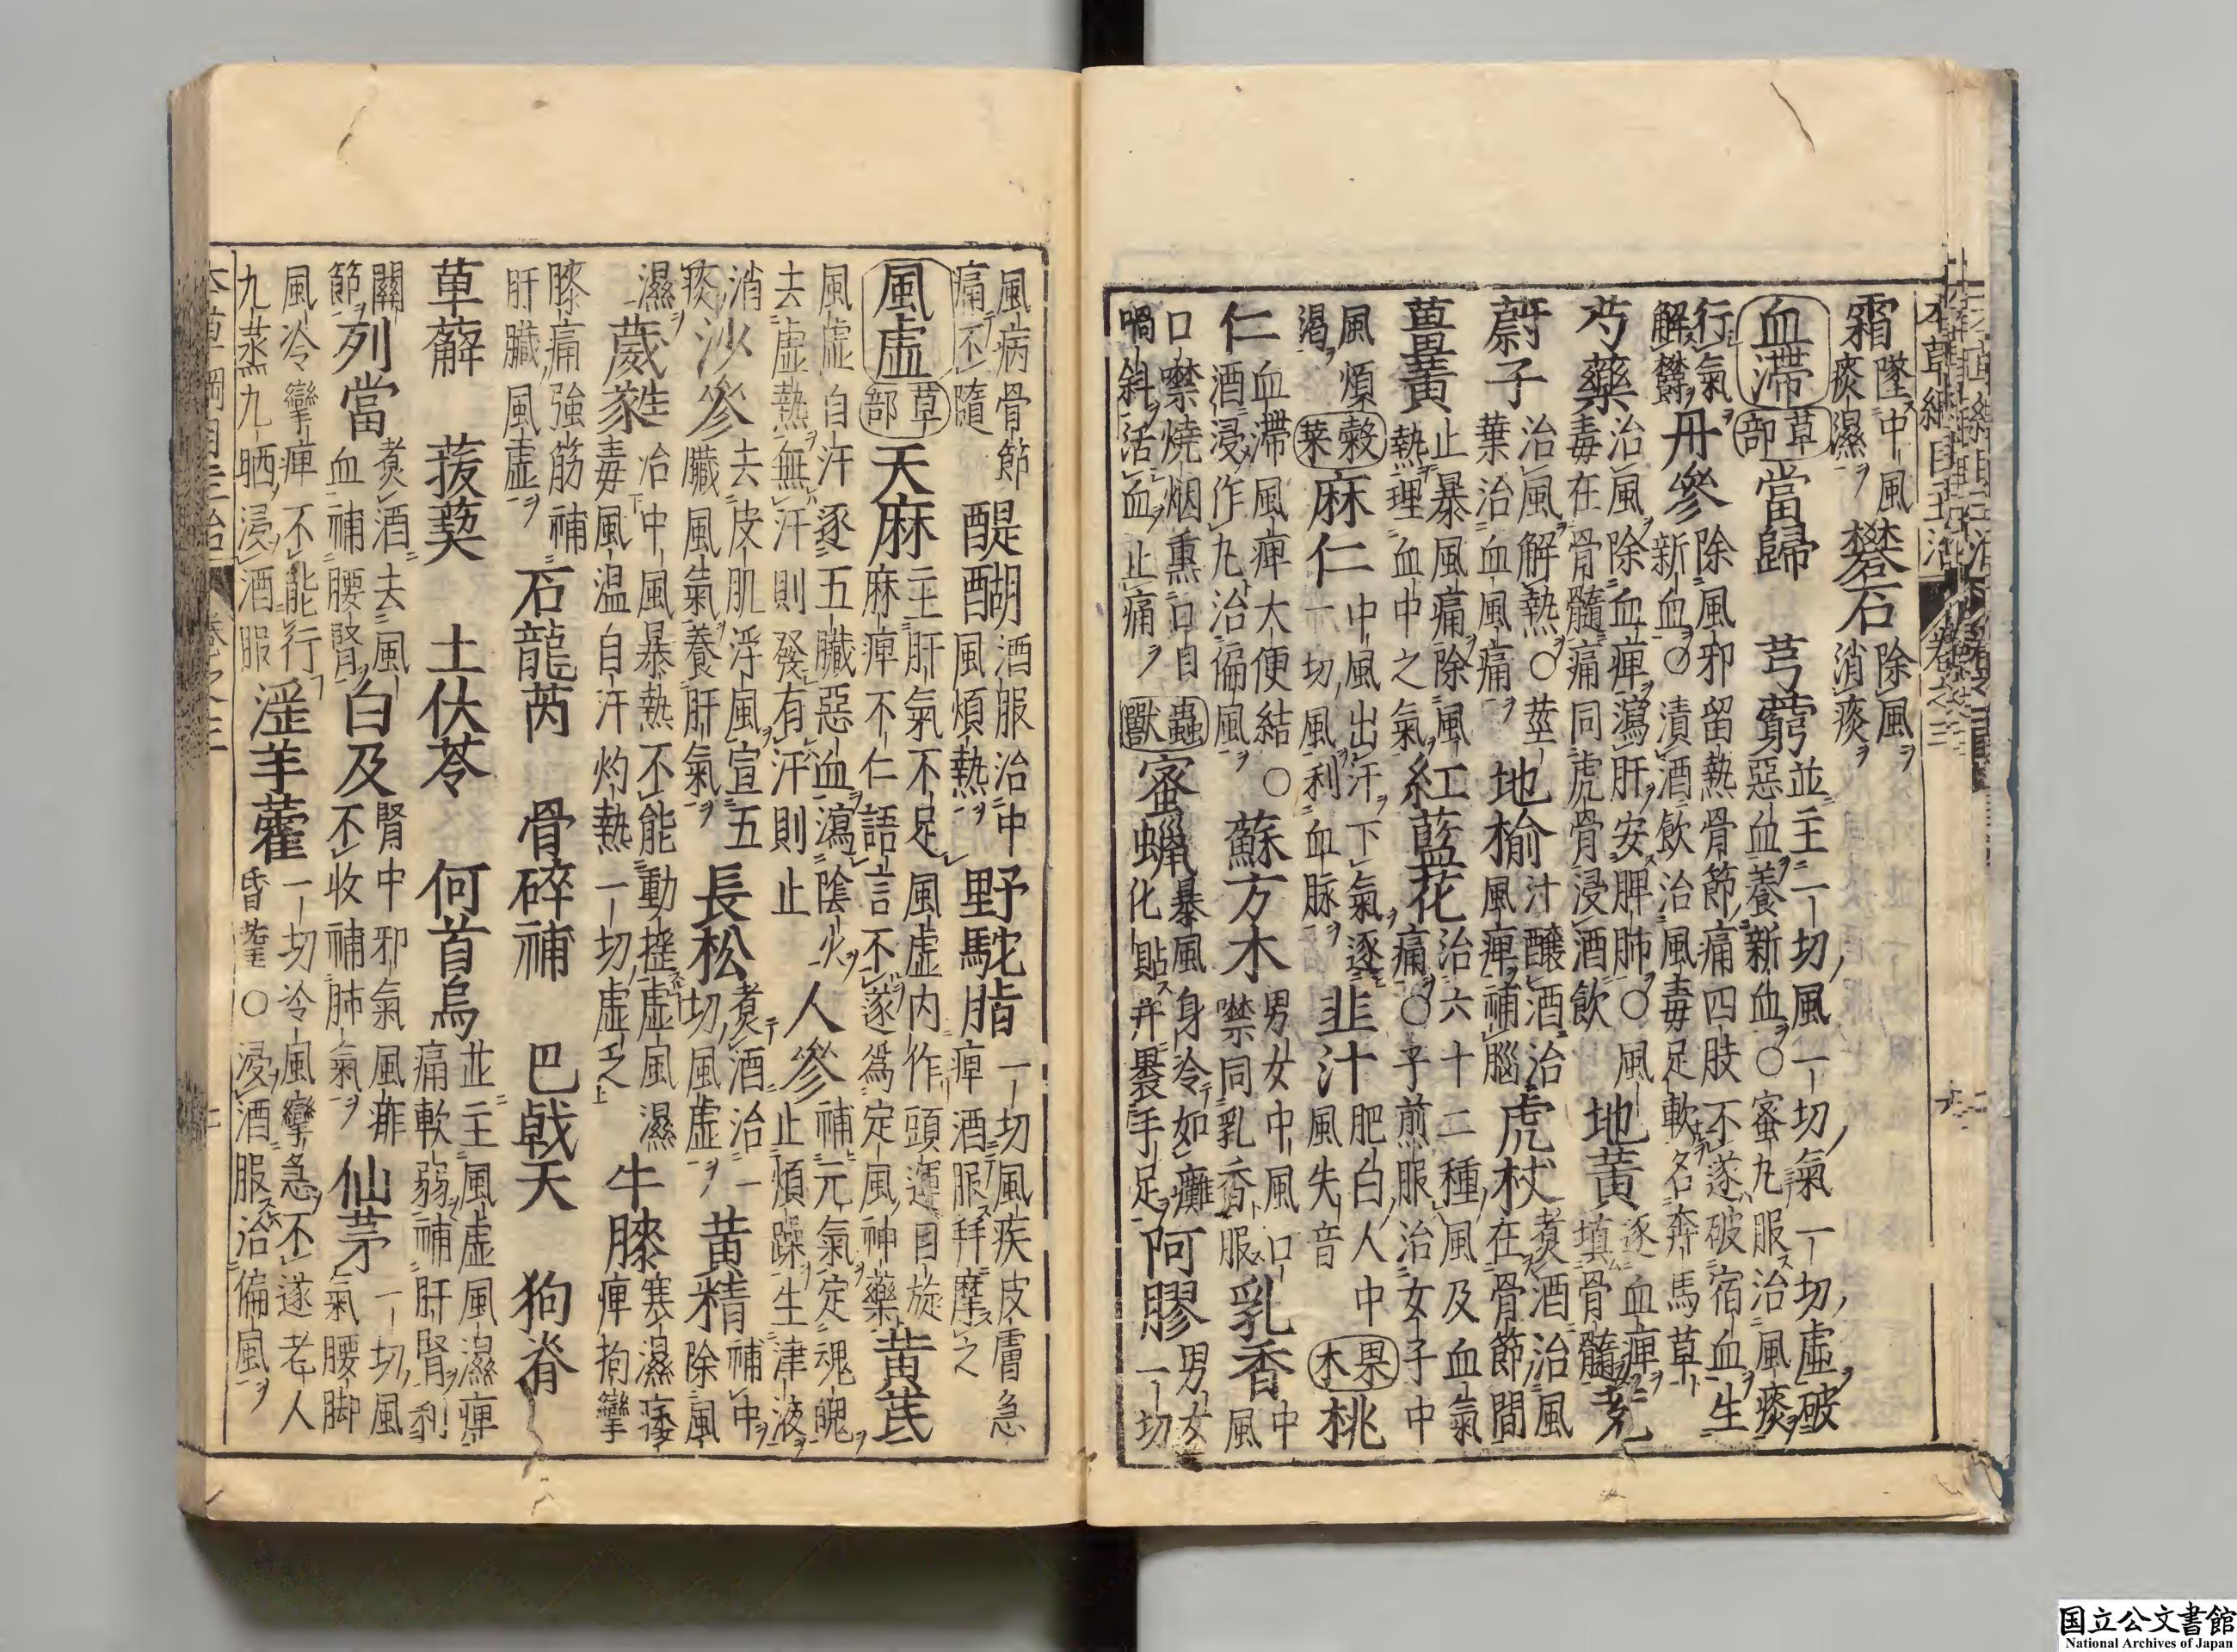 本草綱目主治 卷之三
霜 墜中風痰濕 礬石 除風消痰
血滯 草部 當歸 芎藭 並主一切風一切氣一切虛破惡血養新血○蜜丸服治風痰
行氣解欝 丹參 除風邪留熱骨節痛四肢不遂破宿血生新血○漬酒飲治風毒足軟名奔馬草
芍藥 治風除血痺瀉肝安脾肺○風毒在骨髓痛同虎骨浸酒飲 地黃 逐血痺填骨髓 茺
蔚子 治風解熱○莖葉治血風痛 地榆 汁釀酒治風痺補腦 虎杖 煑酒治風在骨節間
薑黃 止暴風痛除風熱理血中之氣 紅藍花 治六十二種風及血氣痛○子煎服治女子中
風煩渴 穀菜 麻仁 中風出汗下氣逐一切風利血脉 韭汁 肥白人中風失音 果木 桃
仁 血滯風痺大便結○酒浸作丸治偏風 蘇方木 男女中風口噤同乳香服 乳香 中風
口噤燒烟熏口自喎斜活血止痛 蟲獸 蜜蠟 暴風身冷如癱化貼并裹手足 阿膠 男女一切
風病骨節痛不隨 醍醐 酒服治中風煩熱 野駝脂 一切風疾皮膚急痺酒服并摩之
風虛 草部 天麻 主肝氣不足風虛内作頭運目旋麻痺不仁語言不遂爲定風神藥 黃芪
風虛自汗逐五臟惡血瀉陰火去虛熱無汗則發有汗則止 人參 補元氣定魂魄止煩躁生津液
消痰 沙參 去皮肌浮風宣五臟風氣養肝氣 長松 煑酒治一切風虛 黃精 補中除風
濕 葳蕤 治中風暴熱不能動揺虛風濕毒風温自汗灼熱一切虛乏 牛膝 寒濕痿痺拘攣
膝痛強筋補肝臟風虛 石龍芮 骨碎補 巴戟天 狗脊
萆薢 菝葜 土伏苓 何首烏 並主風虛風濕痺痛軟弱補肝腎利
關節 列當 煑酒去風血補腰腎 白及 腎中邪氣風痱不收補肺氣 仙茅 一切風氣腰脚
風冷攣痺不能行九蒸九晒浸酒服 淫羊藿 一切冷風攣急不遂老人昏耄○浸酒服治偏風
本草綱目主治 卷之三
国立公文書館
National Archives of Japan